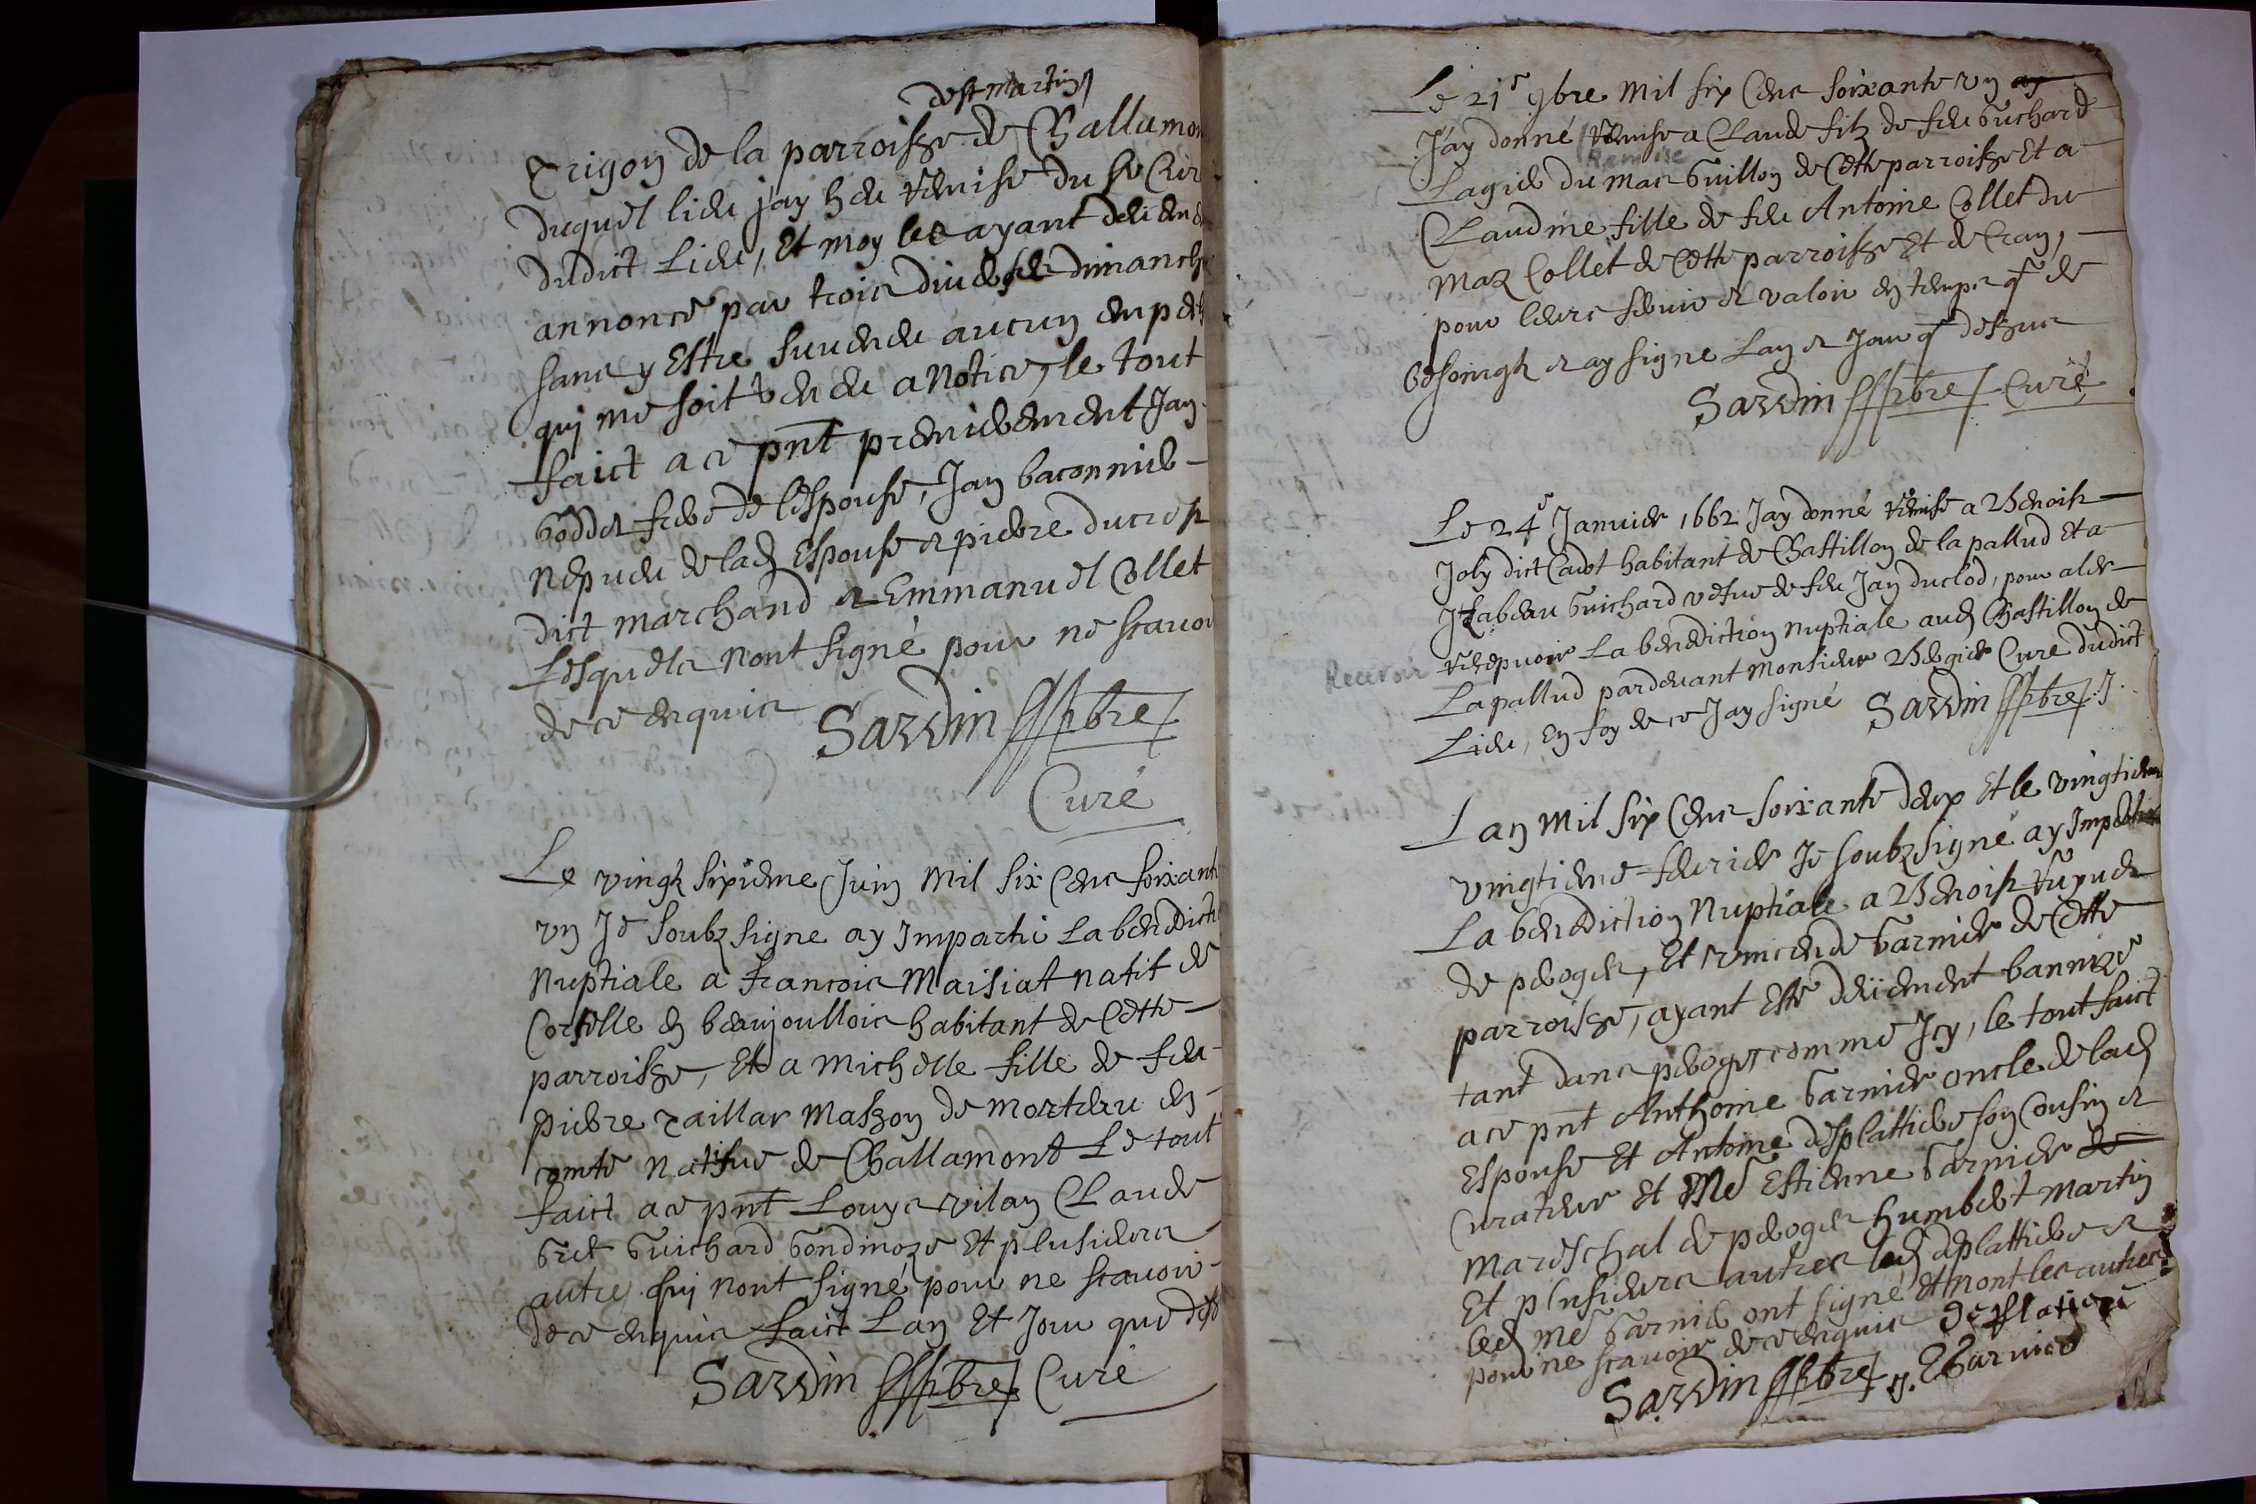 de st martin
Crigon de la parroisse de Challamon
duquel lieu jay heu remise du sr Cur
dudict Lieu, Et moy les ayant
annoncé par trois divers dimanch
sans y Estre survenu aucun
qui me soit venu a notice, le tout
faict a ce pnt premierement Jan
frere de lespouse, Jan baconnier
Nepveu de lad Espouse et pierre ducrest
dict marchand et Emmanuel Collet
Lesquels nont signé pour ne scavoir
de ce enquis Sardin pbre
Curé
Le vingt sixieme Juin mil six Cens soixant
un Je soubz signe ay Imparti La
Nuptiale a francois Maisiat natif de
en beaujoullois habitant de Cette
parroisse, Et a michelle fille de feu
pierre masson de morteau en
comté native de Challamont Le tout
faict a ce pnt Louys vilan Claude
Guichard Et plusieurs
autre qui nont signé pour ne scavoir
de ce enquis faict Lan Et Jour que
Sardin pbre Curé
Le 21e 9bre mil six Cens soixante un
Jay donné remise a Claude filz de feu Guichard
Remise
Lagier du mas Guillon de Cette parroisse Et a
Claudine fille de feu Antoine Collet du
maz Collet de Cette parroisse Et de Cran,
pour leurs servir et valoir en temps q de
besoingt et ay signe Lan et Jour q dessus
Sardin pbre Curé
Le 24e Janvier 1662 Jay donné remise a Benoist
Joly dict Cadot habitant de Chastillon de la pallud Et a
Isabeau Guichard vefve de feu Jan duclod, pour aler
recepvoir La benediction nuptiale aud Chastillon de
Recevoir
Lapallud pardevant monsieur Bergier Curé dudict
Lieu, en foy de ce Jay signé Sardin pbre
Lan mil six Cens soixante deux Et le vingtiem
vingtieme fevrier Je soubz signé ay
La benediction Nuptiale a Benoist
de peroges, Et vincende Garnier de Cette
parroisse, ayant Esté deüement bannizé
tant dans peroges comme Icy, le tout faict
a ce pnt Anthoine Garnier oncle de lad
Espouse Et Antoine desplattiere son Cousin et
Curateur Et Me Estienne Garnier de
mareschal de peroges humbert martin
Et plusieurs autres led desplattiere et
led Me Garnier ont signé Et nont les autres
pour ne scavoir de ce enquis desplatiere
Sardin pbre E Garnier